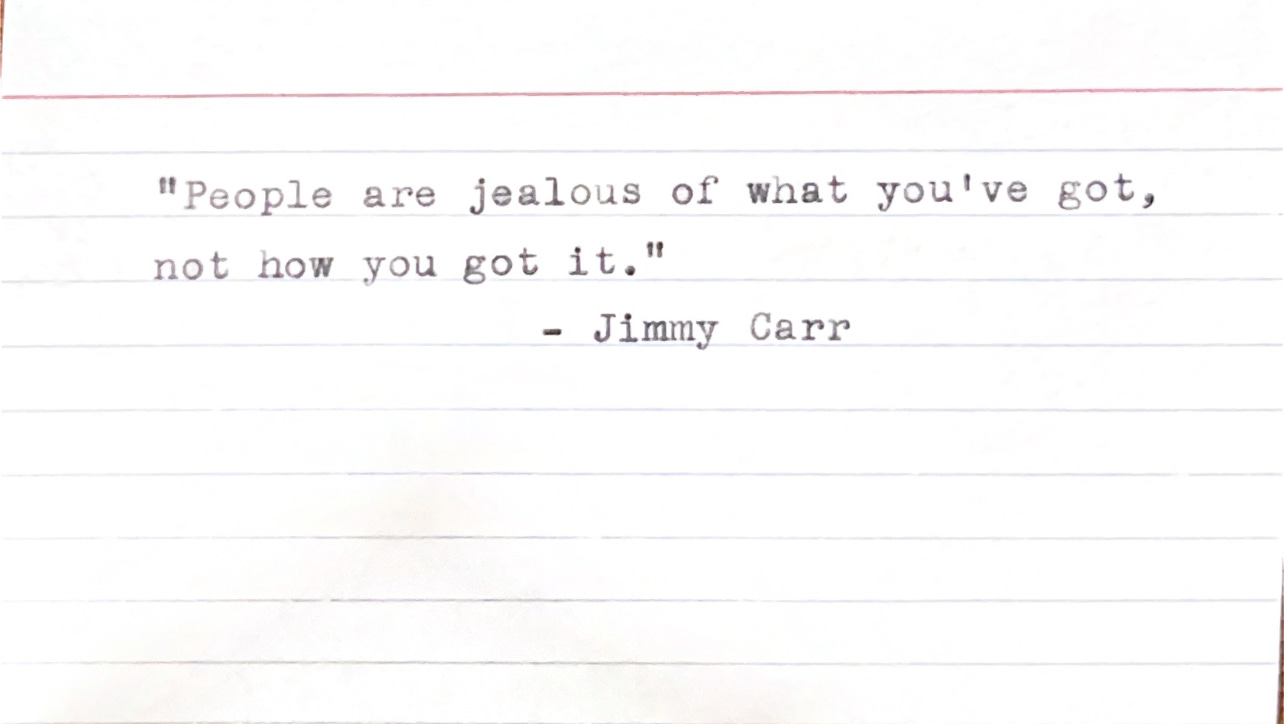 "People are jealous of what you've got,
not how you got it."
- Jimmy Carr